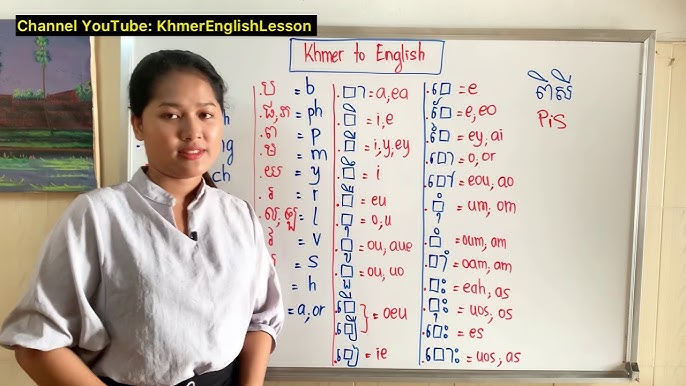 Channel YouTube: KhmerEnglishLesson
Khmer to English
ប = b
ph
ព = p
ម = m
យ = y
រ = r
= l
វ = v
ស = s
= h
= a, or
h
ng
ch
.□ា = a, ea
.□ិ = i, e
.□ី = i, y, ey
.□ឹ = i
.□ឺ = eu
.□ុ = o, u
.□ូ = ou, aue
.□ួ = ou, uo
.□ើ
.□ឿ } = oeu
.□ៀ = ie
.េ□ = e
.ែ□ = e, eo
.ៃ□ = ey, ai
.ោ□ = o, or
.ៅ□ = eou, ao
.□ុំ = um, om
.□ំ = oum, am
.□ាំ = oam, am
.□ះ = eah, as
.□ុះ = uos, os
.េ□ះ = es
.ោ□ះ = uos, as
ពិសី
PiS